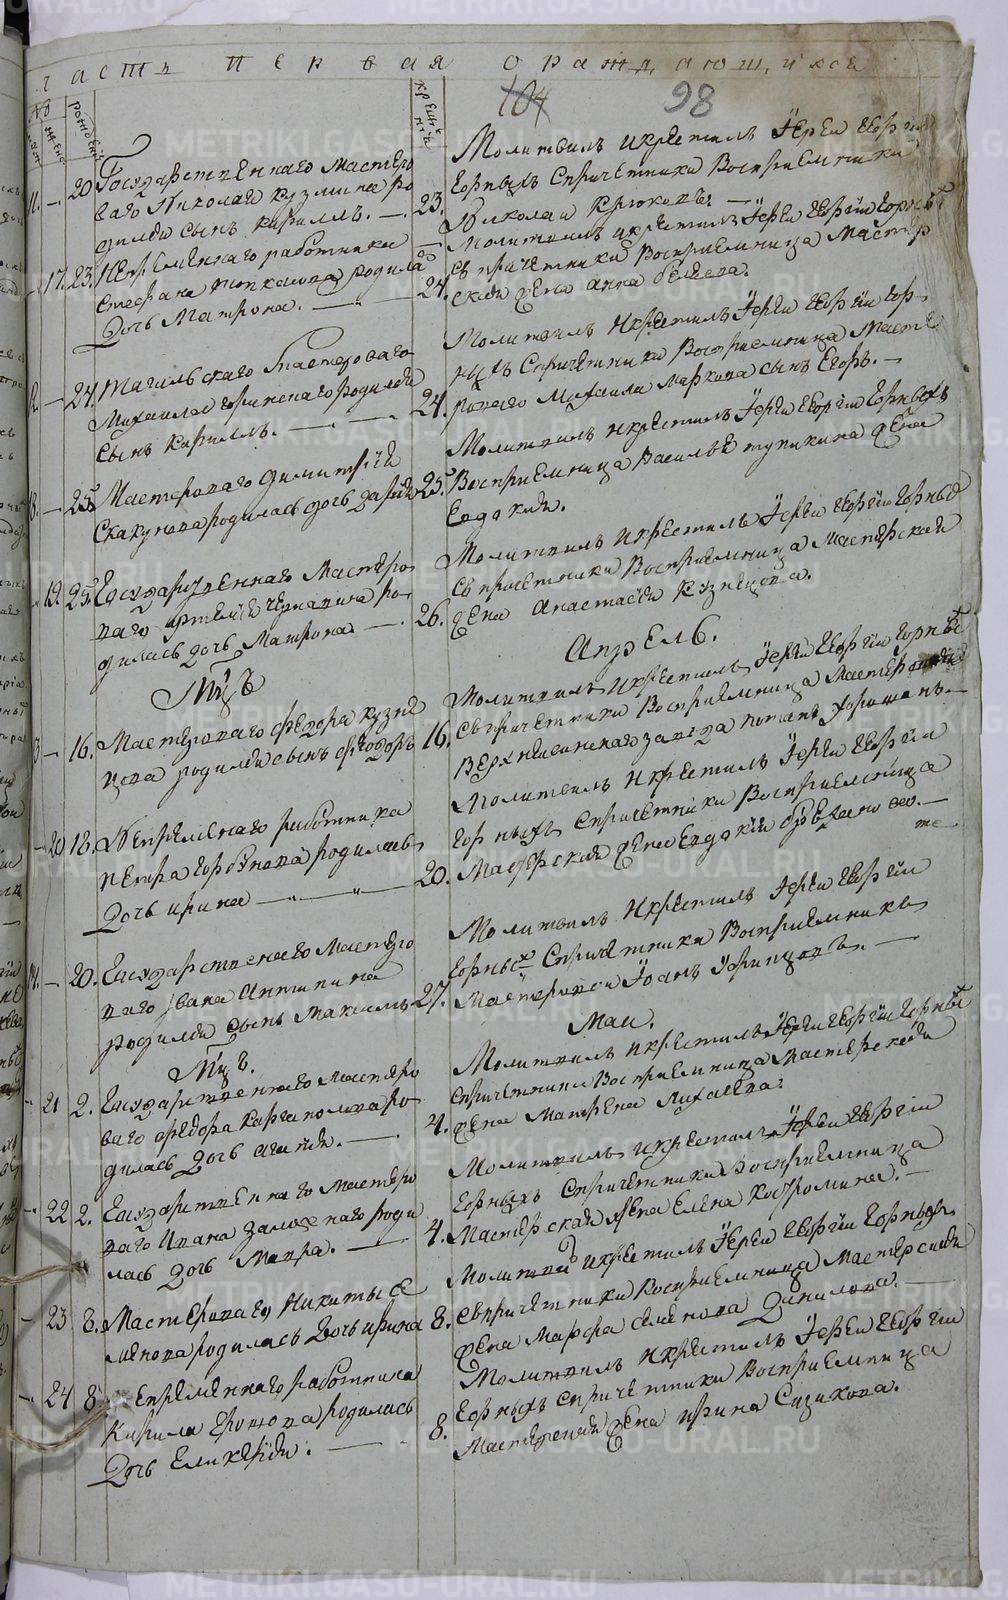 часть первая о раждающихся
104 98
11. — 20. Государственнаго мастеро
ваго Николая Кузмина ро
дился сынъ Кириллъ. — 23.
Молитвилъ икрестилъ Іерей Георгій
Горныхъ Спричетники Восприемники
Николай Крюковъ. —
17. 23. Непременнаго работника
Стефана родила
Дочь Матрона. — 24.
Молитвилъ икрестилъ Іерей Георгій Горныхъ
Спричетники Восприемница Мастер
ская жена Анна Беляева.
12. — 24. Тагильскаго Мастероваго
Михаила родился
Сынъ Кириллъ. — 24.
Молитвилъ икрестилъ Іерей Георгій Гор
ныхъ Спричетники Восприемница Масте
роваго Михаила Маркова сынъ Егоръ. —
18. — 25. Мастероваго Димитрія
Скакунова родилась дочь Дарья 25.
Молитвилъ икрестилъ Іерей Георгій Горныхъ
Восприемница Василья Тупикина жена
Евдокия.
19. 25. Государственнаго Мастеро
ваго Артемія ро
дилась дочь Матрона — 26.
Молитвилъ икрестилъ Іерей Георгій Горных
Спричетники Восприемница Мастерской
жена Анастасія Кузнецова.
Мцъ Апрель.
13 — 16. Мастероваго Федора Кузне
цова родился сынъ Феодоръ 16.
Молитвилъ икрестилъ Іерей Георгій Горных
Спричетники Восприемница Мастер
завода
20 18. Непременнаго работника
Петра Горбунова родилась
Дочь Ирина — 20.
Молитвилъ икрестилъ Іерей Георгій
Горныхъ Спричетники Восприемница
Мастерской жена Евдокия
14. — 20. Государственнаго Мастеро
ваго Ивана Антипина
родился сынъ Максимъ 27.
Молитвилъ икрестилъ Іерей Георгій
Горныхъ Спричетники Восприемникъ
Мастеровой Іоанъ —
Мцъ. Маи.
21 2. Государственнаго мастеро
ваго Федора Каргаполова ро
дилась дочь — 4.
Молитвилъ икрестилъ Іерей Георгій Горных
Спричетники Восприемница мастерская
жена Матрена Михаева.
22 2. Государственнаго мастеро
ваго Ивана роди
лась дочь Мавра. — 4.
Молитвилъ икрестилъ Іерей Георгій
Горныхъ Спричетники Восприемница
Мастерская жена Елена Костромина. —
23 8. Мастероваго Никиты Се
менова родилась Дочь Ирина 8.
Молитвилъ икрестилъ Іерей Георгій Горныхъ
Спричетники Восприемница Мастерская
жена Марфа Семенова Данилова. —
24 8 Непременнаго работника
Кирила родилась
Дочь Гликерія. — 8.
Молитвилъ икрестилъ Іерей Георгій
Горныхъ Спричетники Восприемница
Мастерская жена Ирина Сизикова.
METRIKI.GASO-URAL.RU